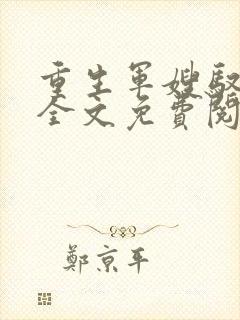 重生軍嫂馭
全文免費閱
鄭京平